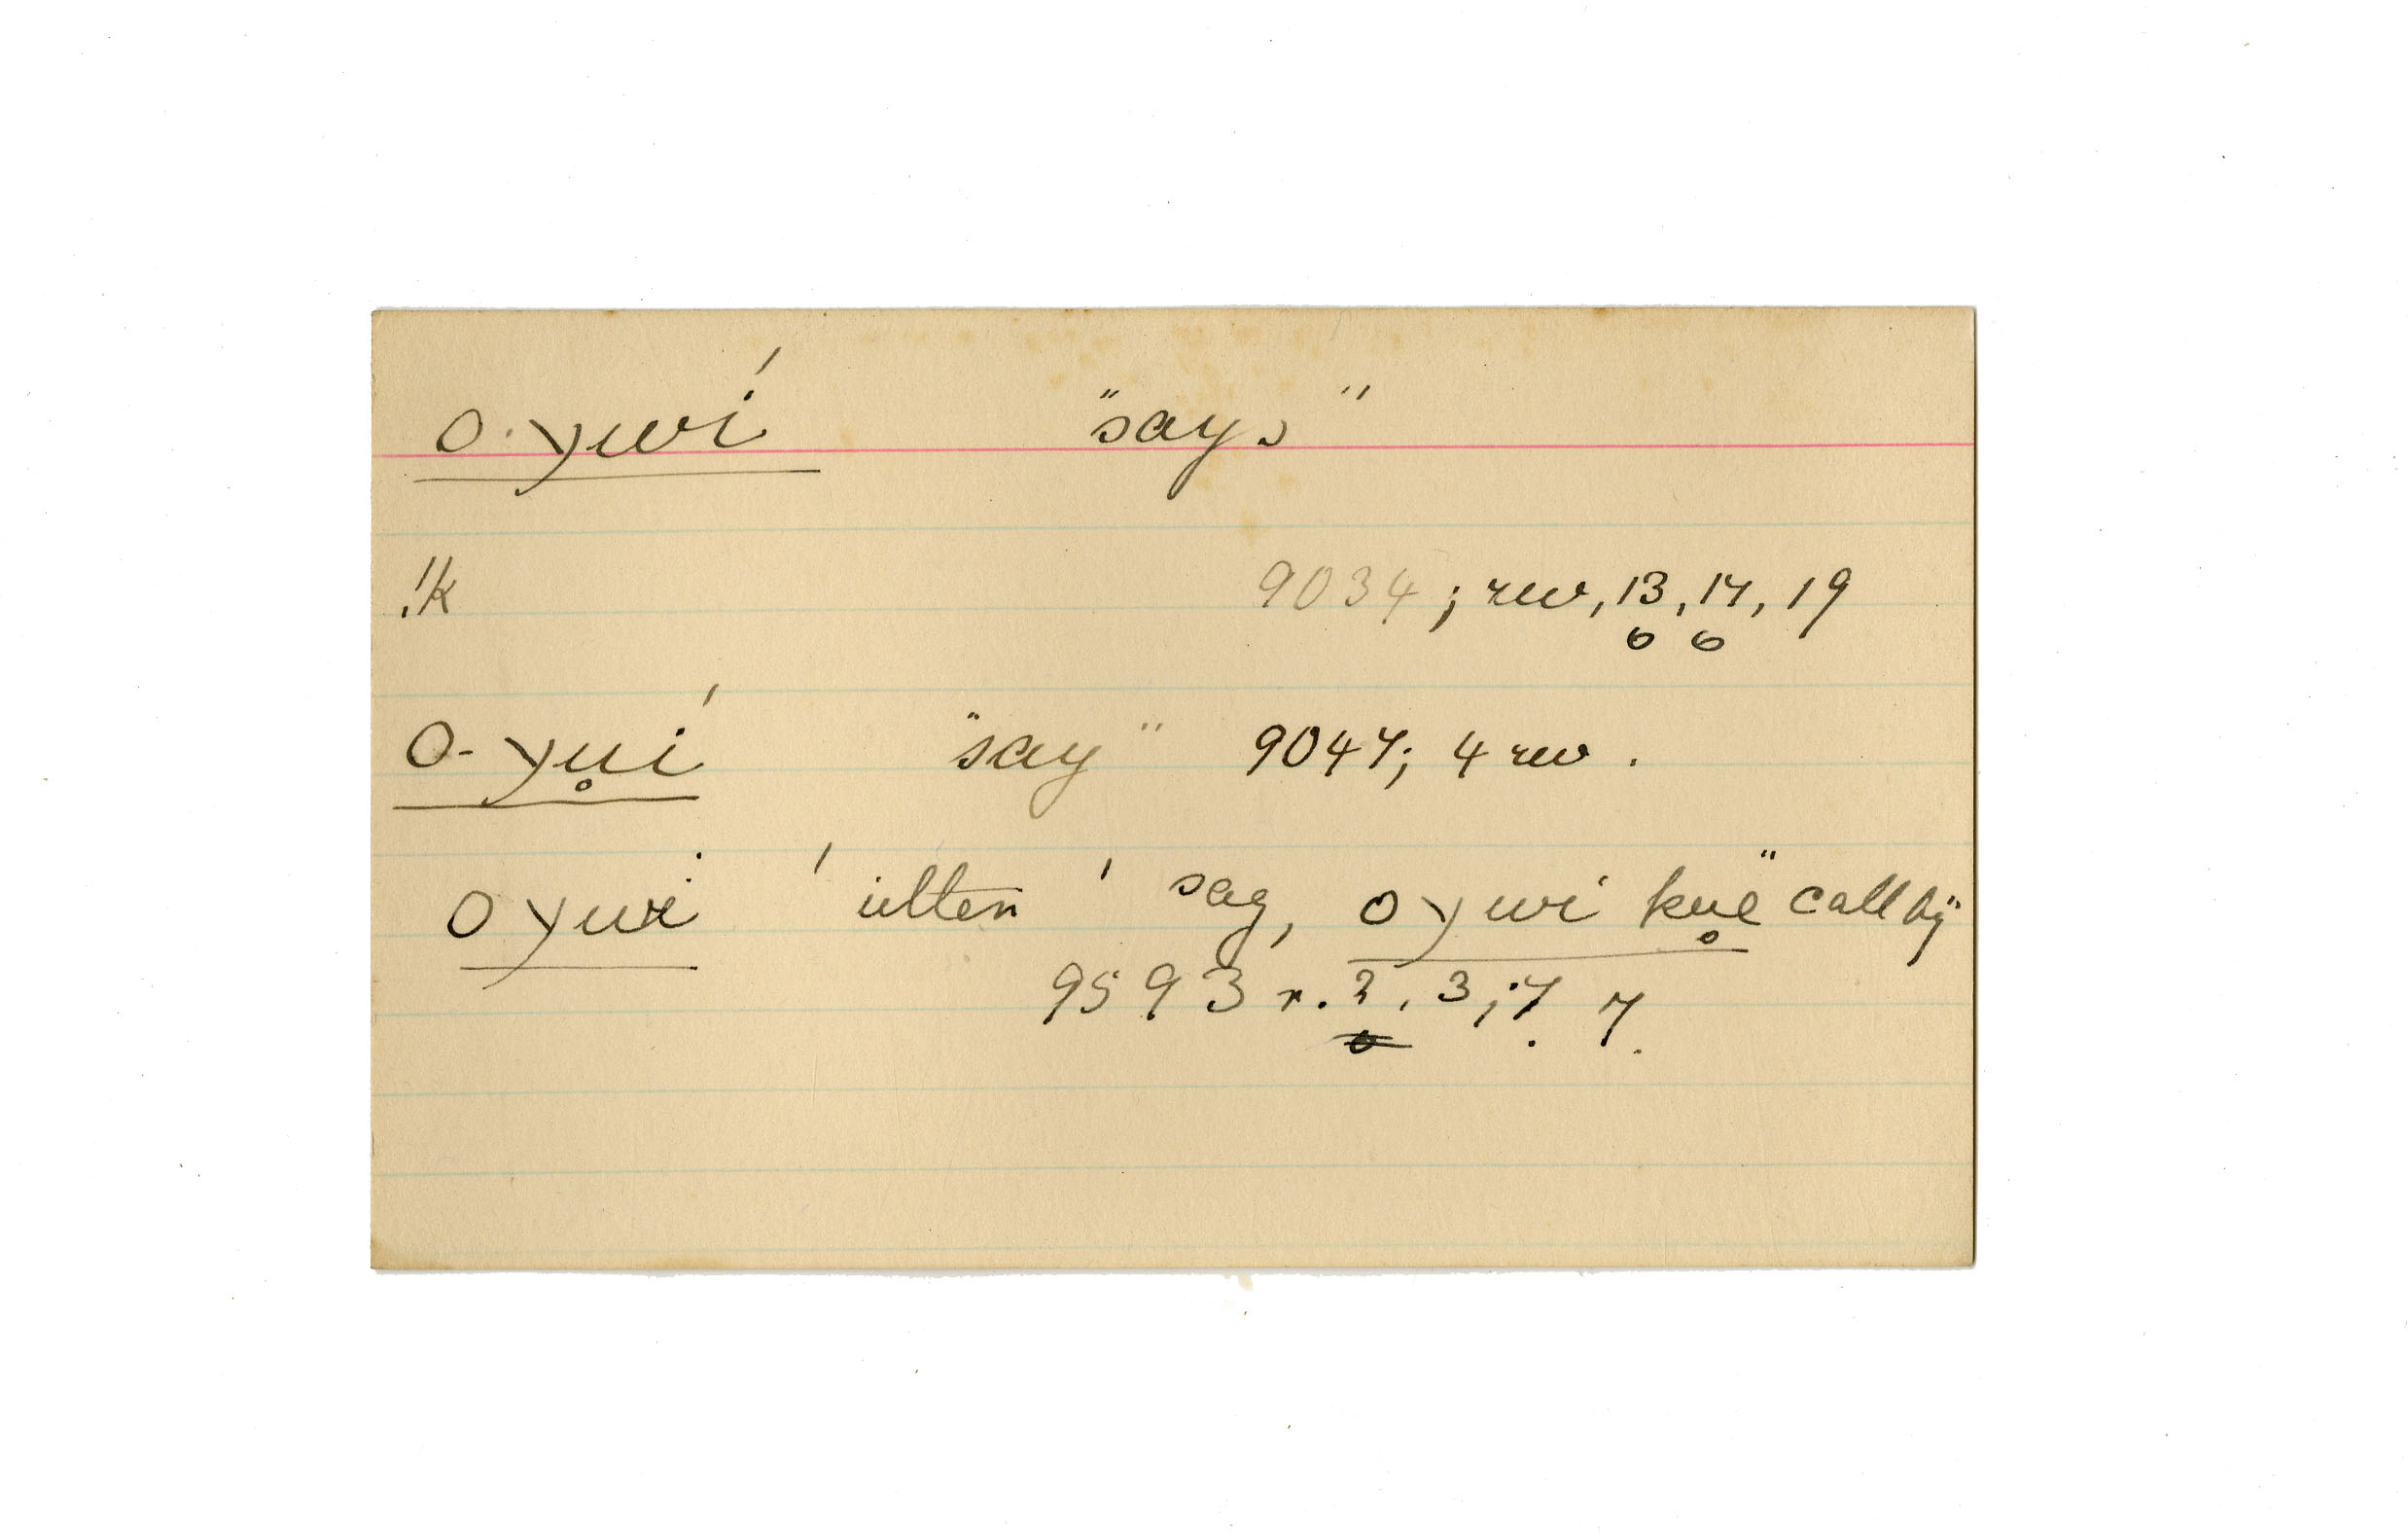 o.ywí "says"
!k 9034; rev, 13, 17, 19
o-yu̥í "say" 9047; 4 rev.
oywi say, oywi ku̥e "call by"
9593 r. 2, 3; 7 7